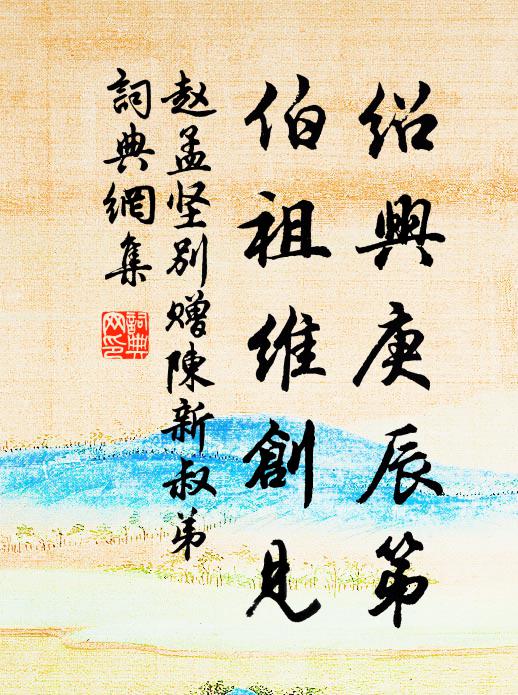 绍興庚辰第
伯祖維創見
赵孟坚别赠陳新叔弟
詞典網集
詞典
网印